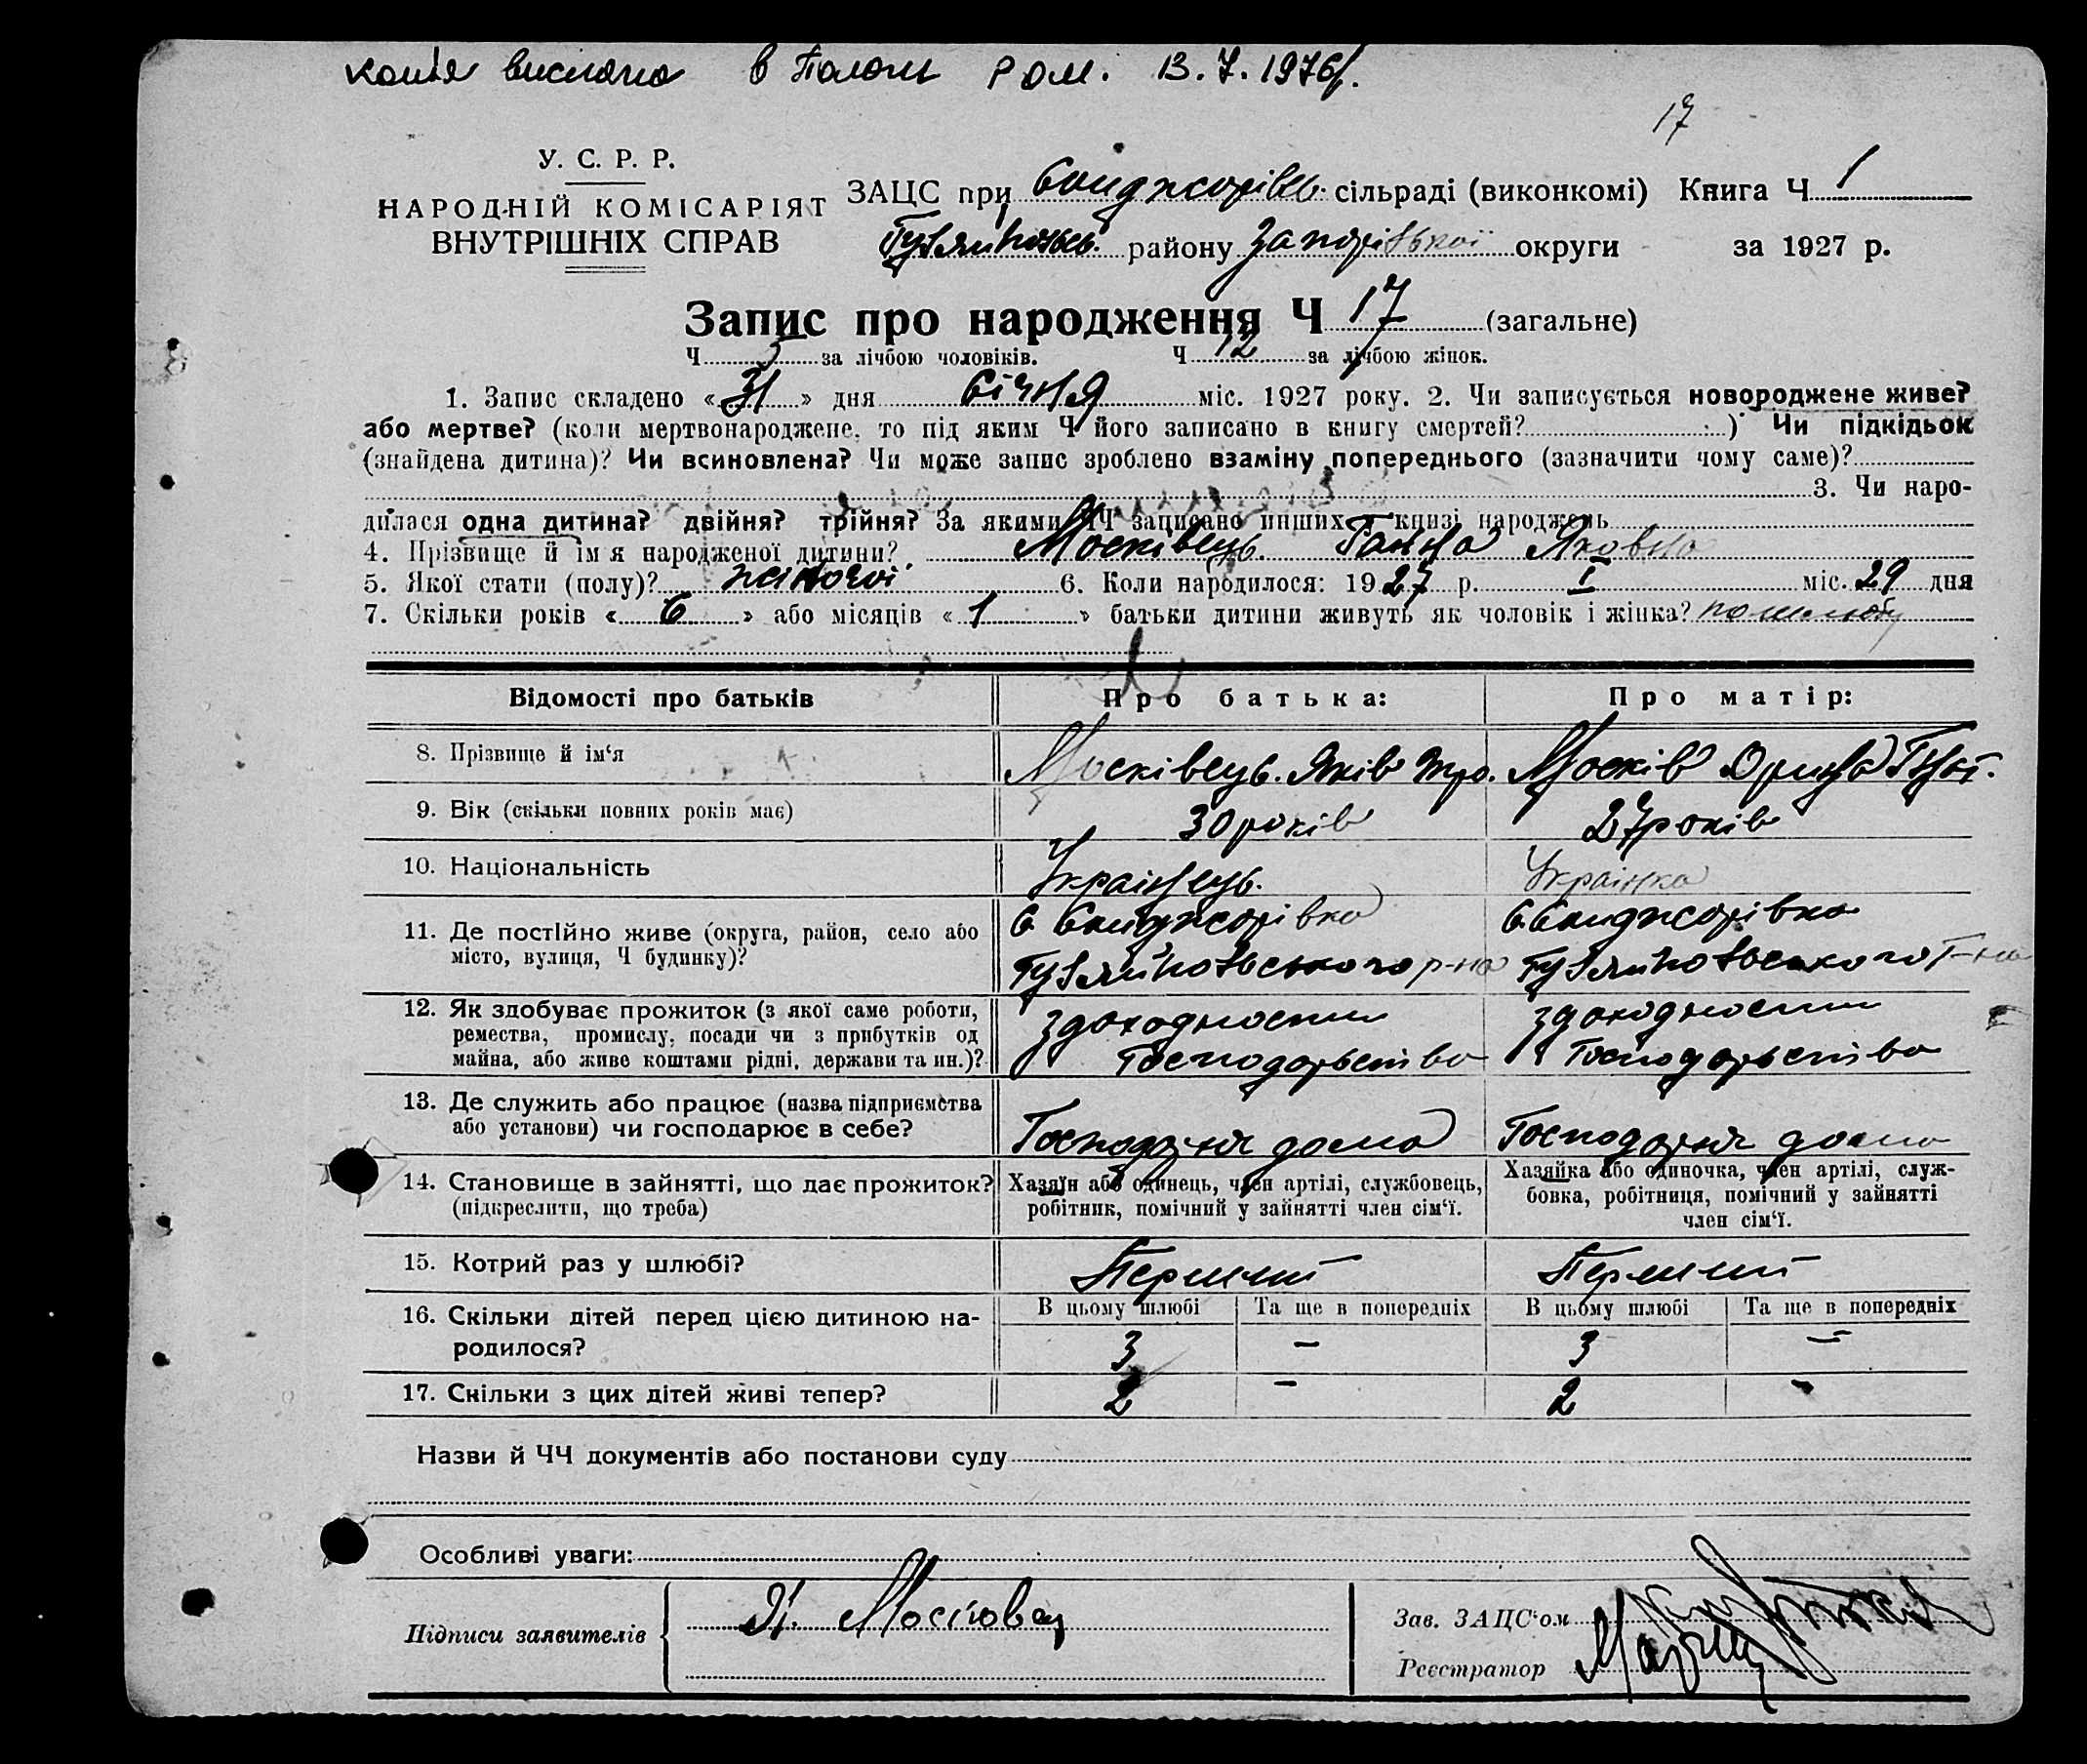 копія вислана в Пологи РОМ. 13.7.1976 р.
17
У. С. Р. Р.
НАРОДНІЙ КОМІСАРІЯТ
ВНУТРІШНІХ СПРАВ
ЗАЦС при сільраді (виконкомі) Книга Ч 1
Гуляйпольсь. району Запорізької округи за 1927 р.
Запис про народження Ч 17 (загальне)
Ч 5 за лічбою чоловіків. Ч 12 за лічбою жінок.
1. Запис складено «31» дня Січня міс. 1927 року. 2. Чи записується новороджене живе?
або мертве? (коли мертвонароджене, то під яким Ч його записано в книгу смертей? ) Чи підкідьок
(знайдена дитина)? Чи всиновлена? Чи може запис зроблено взаміну попереднього (зазначити чому саме)?
3. Чи наро-
дилася одна дитина? двійня? трійня? За якими ЧЧ записано инших у книзі народжень
4. Прізвище й ім'я народженої дитини? Москівець. Ганна Яковна
5. Якої стати (полу)? жіночої 6. Коли народилося: 1927 р. I міс. 29 дня
7. Скільки років «6» або місяців «1» батьки дитини живуть як чоловік і жінка? по шлюбу
Відомості про батьків Про батька: Про матір:
8. Прізвище й ім'я Москівець. Яків Москів Орина
9. Вік (скільки повних років має) 30 років 27 років
10. Національність Українець. Українка
11. Де постійно живе (округа, район, село або
місто, вулиця, Ч будинку)?
Гуляйпольського р-на Гуляйпольського р-на
12. Як здобуває прожиток (з якої саме роботи,
ремества, промислу, посади чи з прибутків од
майна, або живе коштами рідні, держави та ин.)?
з доходности з доходности
Господарьства Господарьства
13. Де служить або працює (назва підприємства
або установи) чи господарює в себе?
Господарня дома Господарня дома
14. Становище в зайнятті, що дає прожиток?
(підкреслити, що треба)
Хазяїн або одинець, член артілі, службовець,
робітник, помічний у зайнятті член сім'ї.
Хазяйка або одиночка, член артілі, служ-
бовка, робітниця, помічний у зайнятті
член сім'ї.
15. Котрий раз у шлюбі? Перший Перший
16. Скільки дітей перед цією дитиною на-
родилося?
В цьому шлюбі Та ще в попередніх В цьому шлюбі Та ще в попередніх
3 – 3 –
17. Скільки з цих дітей живі тепер? 2 – 2 –
Назви й ЧЧ документів або постанови суду
Особливі уваги:
Підписи заявителів
Зав. ЗАЦС'ом
Реєстратор